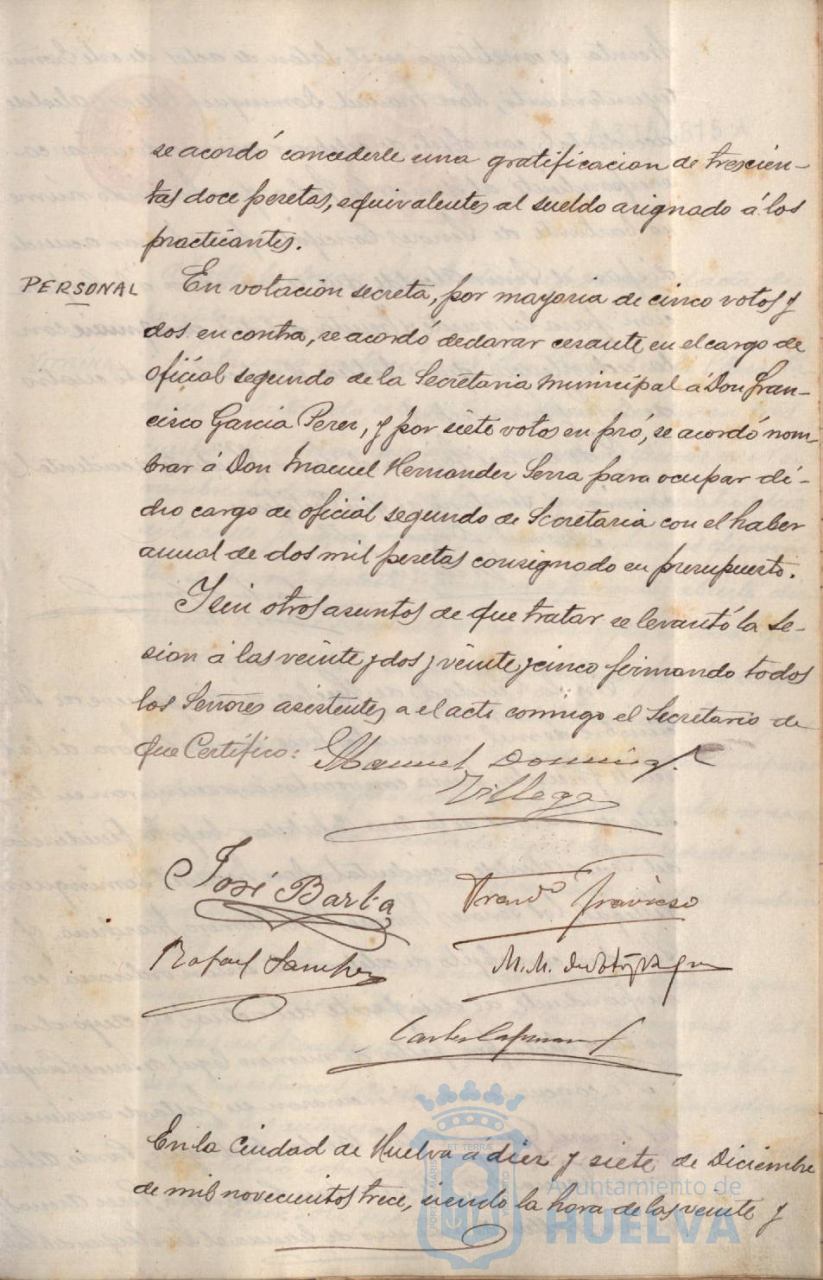 se acordó concederle una gratificacion de trescien-
tas doce pesetas, equivalentes al sueldo asignado á los
practicantes.
PERSONAL
En votación secreta, por mayoria de cinco votos y
dos en contra, se acordó declarar cesante en el cargo de
oficial segundo de la Secretaria municipal á Don Fran-
cisco García Perez, y por siete votos en pró, se acordó nom-
brar á Don Manuel Hernandez Serra para ocupar di-
cho cargo de oficial segundo de Secretaria con el haber
anual de dos mil pesetas consignado en presupuesto.
Y sin otros asuntos de que tratar se levantó la se-
sion á las veinte y dos y veinte y cinco firmando todos
los Señores asistentes a el acto conmigo el Secretario de
que Certifico:
Manuel Doming
Villegas
José Barba
Rafael Sanchez
M. M.
Carlos
En la Ciudad de Huelva a diez y siete de Diciembre
de mil novecientos trece, siendo la hora de las veinte y
Ayuntamiento de
HUELVA